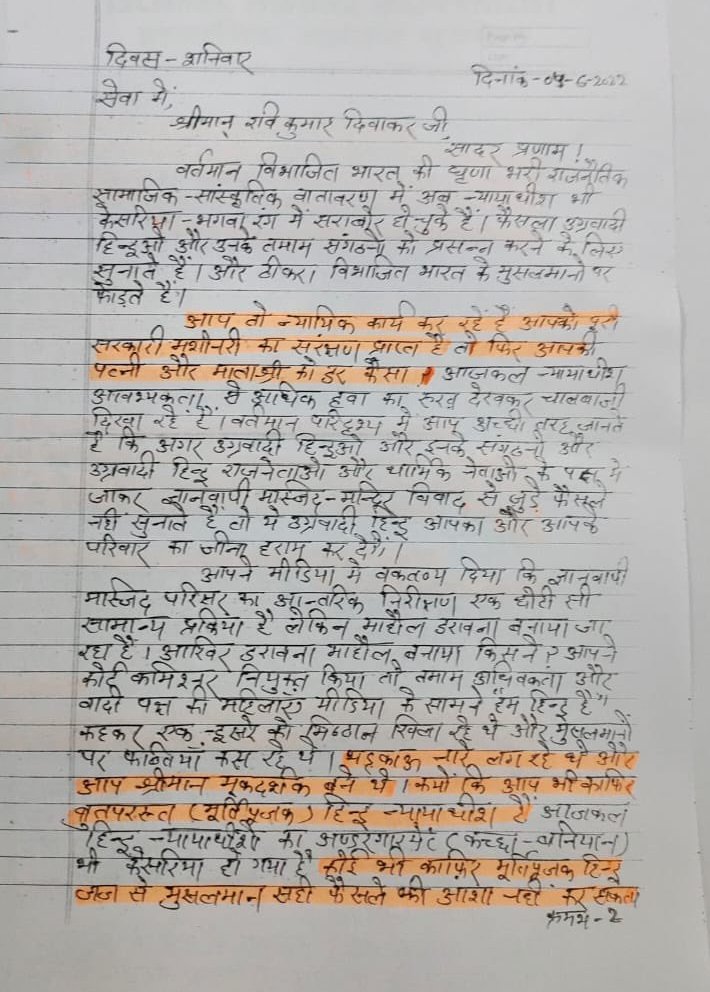 दिवस - शनिवार
दिनांक - 04-6-2022
सेवा में,
श्रीमान् रवि कुमार दिवाकर जी,
सादर प्रणाम !
वर्तमान विभाजित भारत की घृणा भरी राजनैतिक
सामाजिक-सांस्कृतिक वातावरण में अब न्यायाधीश भी
केसरिया - भगवा रंग में सराबोर हो चुके हैं। फैसला उग्रवादी
हिन्दुओं और उनके तमाम संगठनों को प्रसन्न करने के लिए
सुनाते हैं। और ठीकरा विभाजित भारत के मुसलमानों पर
फोड़ते हैं।
आप तो न्यायिक कार्य कर रहें हैं आपको पूरी
सरकारी मशीनरी का सुरंक्षण प्राप्त है तो फिर आपकी
पत्नी और माताश्री का डर कैसा। आजकल न्यायाधीश
आवश्यकता से अधिक हवा का रुख देखकर चालबाजी
दिखा रहें हैं। वर्तमान परिदृश्य में आप अच्छी तरह जानते
हैं कि अगर उग्रवादी हिन्दुओं और इनके संगठनों और
उग्रवादी हिन्दू राजनेताओं और धार्मिक नेताओं के पक्ष में
जाकर ज्ञानवापी मस्जिद-मन्दिर विवाद से जुड़े फैसले
नहीं सुनाते हैं तो ये उग्रवादी हिन्दू आपका और आपके
परिवार का जीना हराम कर देगें।
आपने मीडिया में वक्तव्य दिया कि ज्ञानवापी
मस्जिद परिसर का आन्तरिक निरीक्षण एक छोटी सी
सामान्य प्रक्रिया है लेकिन माहौल डरावना बनाया जा
रहा है। आखिर डरावना माहौल बनाया किसने? आपने
कोर्ट कमिश्नर नियुक्त किया तो तमाम अधिवक्ता और
वादी पक्ष की महिलाएं मीडिया के सामने "हम हिन्दू हैं"
कहकर एक-दूसरे को मिष्ठान खिला रहे थे और मुसलमानों
पर फब्तियाँ कस रहे थे। भड़काऊ नारे लग रहे थे और
आप श्रीमान मूकदर्शक बने थे। क्यों कि आप भी काफिर
बुतपरस्त (मूर्तिपूजक) हिन्दू न्यायाधीश हैं आजकल
हिन्दू न्यायाधीशों का अण्डरगारमेंट (कच्छा-बनियान)
भी केसरिया हो गया है कोई भी काफिर मूर्तिपूजक हिन्दू
जज से मुसलमान सही फैसले की आशा नहीं कर सकता
क्रमश - 2